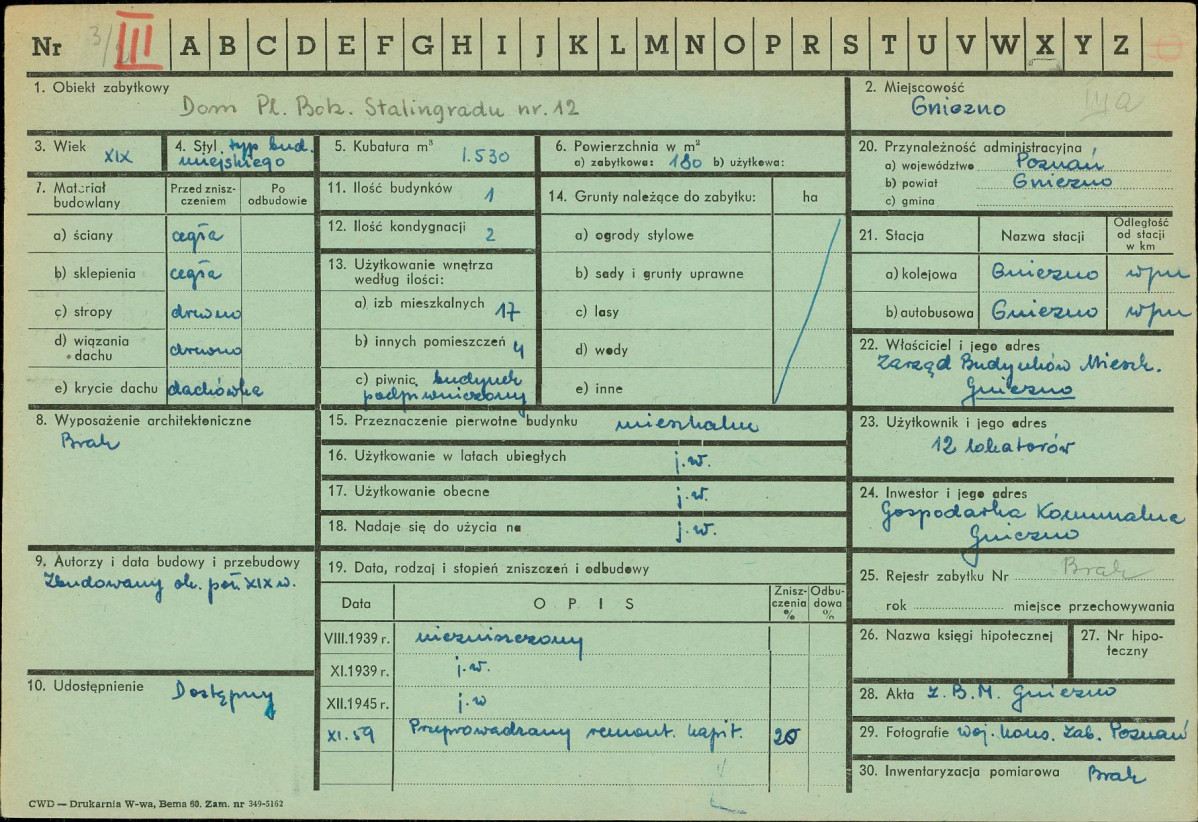 Nr 3/ III A B C D E F G H I J K L M N O P R S T U V W X Y Z
1. Obiekt zabytkowy
Dom Pl. Boh. Stalingradu nr. 12
2. Miejscowość
Gniezno III a
3. Wiek XIX
4. Styl typ bud.
miejskiego
5. Kubatura m³ 1.530
6. Powierzchnia w m²
a) zabytkowa: 180 b) użytkowa:
20. Przynależność administracyjna
a) województwo Poznań
b) powiat Gniezno
c) gmina
7. Materiał
budowlany
Przed znisz-
czeniem
Po
odbudowie
a) ściany cegła
b) sklepienia cegła
c) stropy drewno
d) wiązania
dachu drewno
e) krycie dachu dachówka
11. Ilość budynków 1
12. Ilość kondygnacji 2
13. Użytkowanie wnętrza
według ilości:
a) izb mieszkalnych 17
b) innych pomieszczeń 4
c) piwnic budynek
podpiwniczony
14. Grunty należące do zabytku: ha
a) ogrody stylowe
b) sady i grunty uprawne
c) lasy
d) wody
e) inne
21. Stacja Nazwa stacji
Odległość
od stacji
w km
a) kolejowa Gniezno
b) autobusowa Gniezno
22. Właściciel i jego adres
Zarząd Budynków Mieszk.
Gniezno
8. Wyposażenie architektoniczne
Brak
15. Przeznaczenie pierwotne budynku mieszkalne
16. Użytkowanie w latach ubiegłych j.w.
17. Użytkowanie obecne j.w.
18. Nadaje się do użycia na j.w.
23. Użytkownik i jego adres
12 lokatorów
24. Inwestor i jego adres
Gospodarka Komunalna
Gniezno
9. Autorzy i data budowy i przebudowy
Zbudowany ok. poł. XIX w.
19. Data, rodzaj i stopień zniszczeń i odbudowy
Data OPIS
Znisz-
czenia
%
Odbu-
dowa
%
VIII.1939 r. niezniszczony
XI.1939 r. j.w.
XII.1945 r. j.w
XI.59 Przeprowadzany remont. kapit. 20
25. Rejestr zabytku Nr Brak
rok miejsce przechowywania
26. Nazwa księgi hipotecznej
27. Nr hipo-
teczny
10. Udostępnienie Dostępny
28. Akta Z.B.M. Gniezno
29. Fotografie Woj. Kons. Zab. Poznań
30. Inwentaryzacja pomiarowa Brak
CWD — Drukarnia W-wa, Bema 60. Zam. nr 349-5162